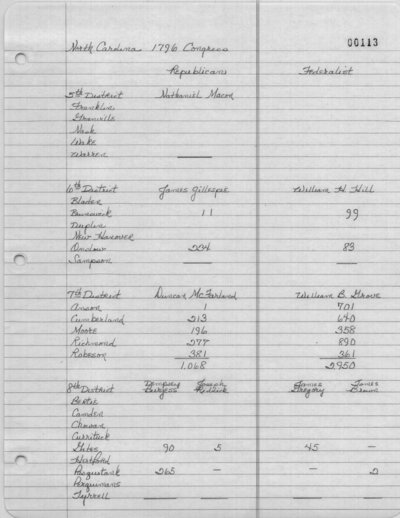 North Carolina 1796 Congress 00113
Republicans Federalist
5th District Nathaniel Macon
Franklin
Granville
Nash
Wake
Warren
6th District James Gillespie William H. Hill
Bladen
Brunswick 11 99
Duplin
New Hanover
Onslow 224 83
Sampson
7th District Duncan McFarland William B. Grove
Anson 1 701
Cumberland 213 640
Moore 196 358
Richmond 277 890
Robeson 381 361
1,068 2950
8th District Dempsey Burgess Joseph Riddick James Gregory James Brown
Bertie
Camden
Chowan
Currituck
Gates 90 5 45 —
Hertford
Pasquotank 265 — — 2
Perquimans
Tyrrell